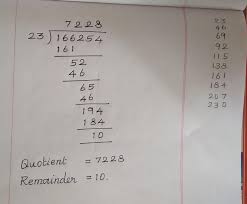 7228
23)166254
161
52
46
65
46
194
184
10
Quotient = 7228
Remainder = 10.
23
46
69
92
115
138
161
184
207
230